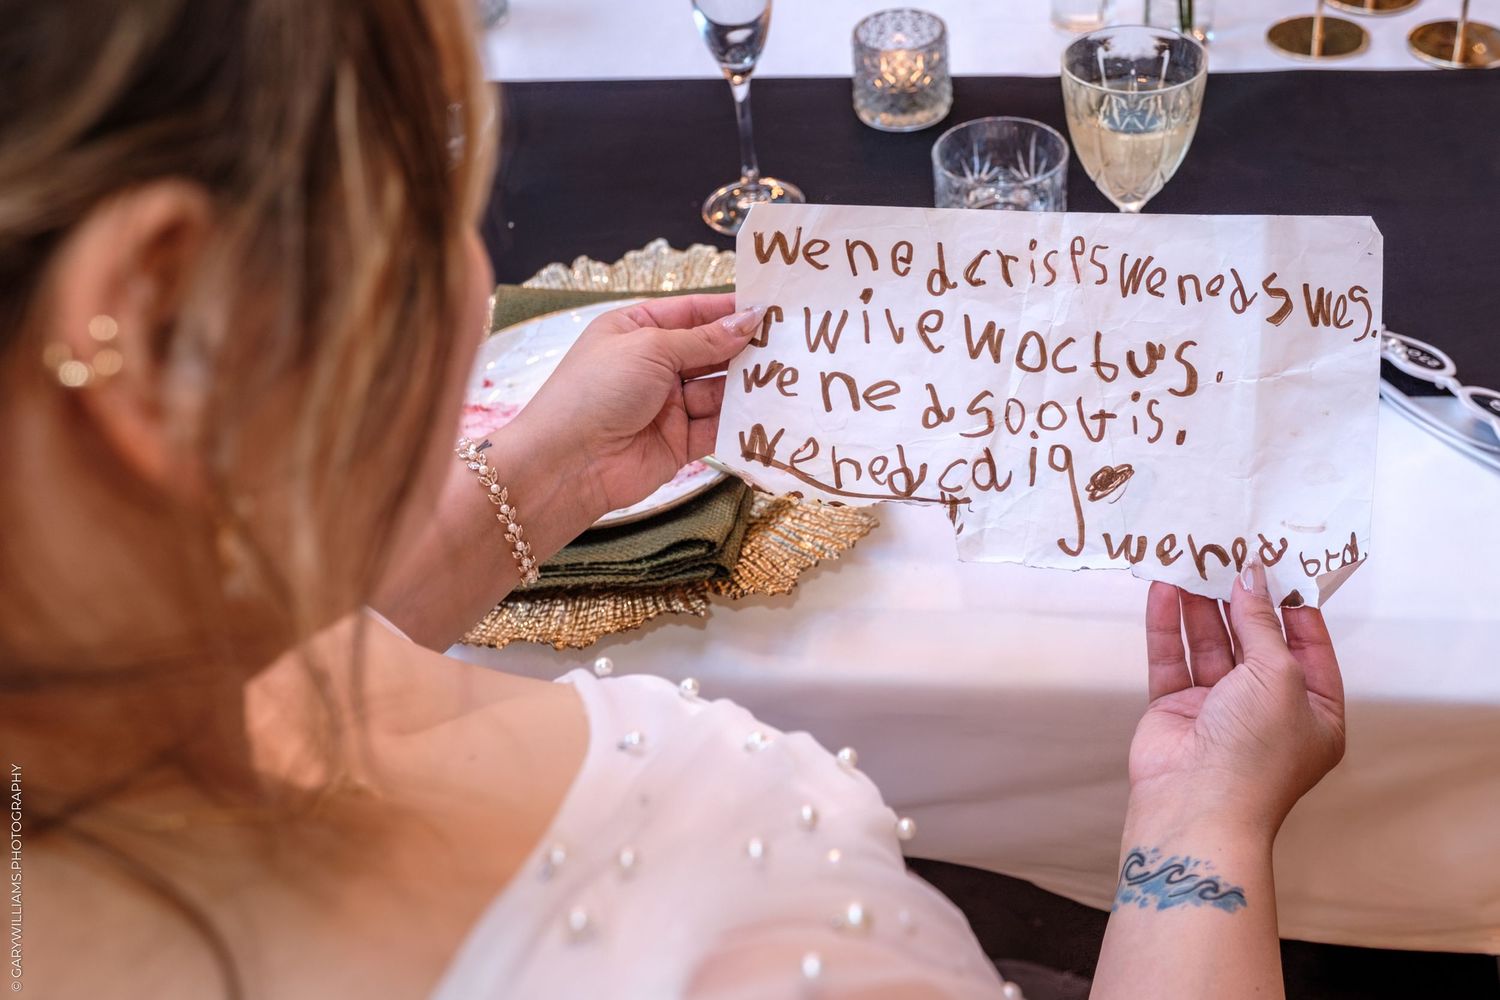 we ned crisps we ned swes.
s wile woctus.
we ned sootis.
we ned cdig
we ned brd
© GARYWILLIAMS.PHOTOGRAPHY